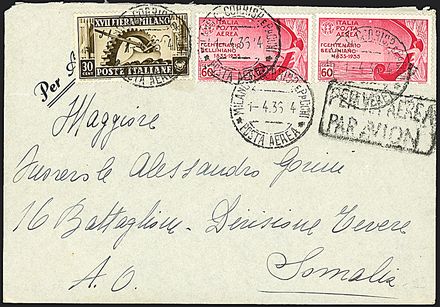 XVII FIERA DI MILANO
30 CENT
POSTE ITALIANE
ITALIA
POSTA
AEREA
I CENTENARIO
BELLINIANO
1835-1935
60
ITALIA
POSTA
AEREA
I CENTENARIO
BELLINIANO
1835-1935
60
MILANO
POSTA AEREA
Per
PER VIA AEREA
PAR AVION
Maggiore
Alessandro
16 Battaglione - Divisione Tevere
A. O.
Somalia